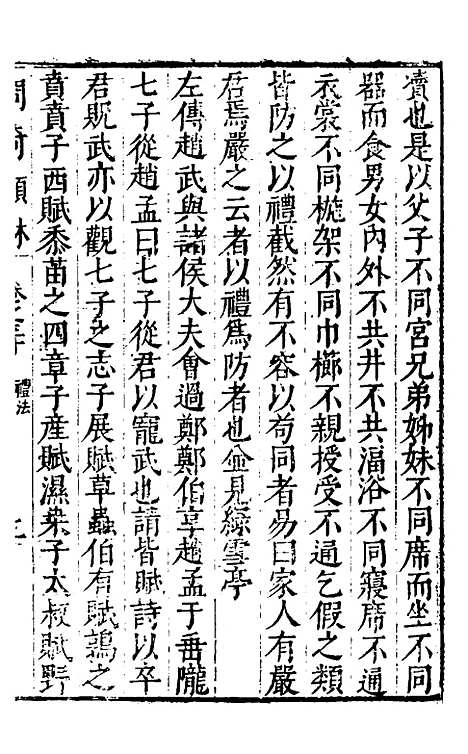 瀆也是以父子不同宮兄弟姊妹不同席而坐不同
器而食男女內外不共井不共湢浴不同寢席不通
衣裳不同椸架不同巾櫛不親授受不通乞假之類
皆防之以禮截然有不容以苟同者易曰家人有嚴
君焉嚴之云者以禮爲防者也並見綠雪亭
左傳趙武與諸侯大夫會過鄭鄭伯享趙孟于垂隴
七子從趙孟曰七子從君以寵武也請皆賦詩以卒
君貺武亦以觀七子之志子展賦草蟲伯有賦鶉之
賁賁子西賦黍苗之四章子產賦濕桑子太叔賦野
禮法